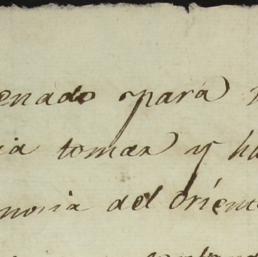 enado para
ia tomar y ha
moria del orient